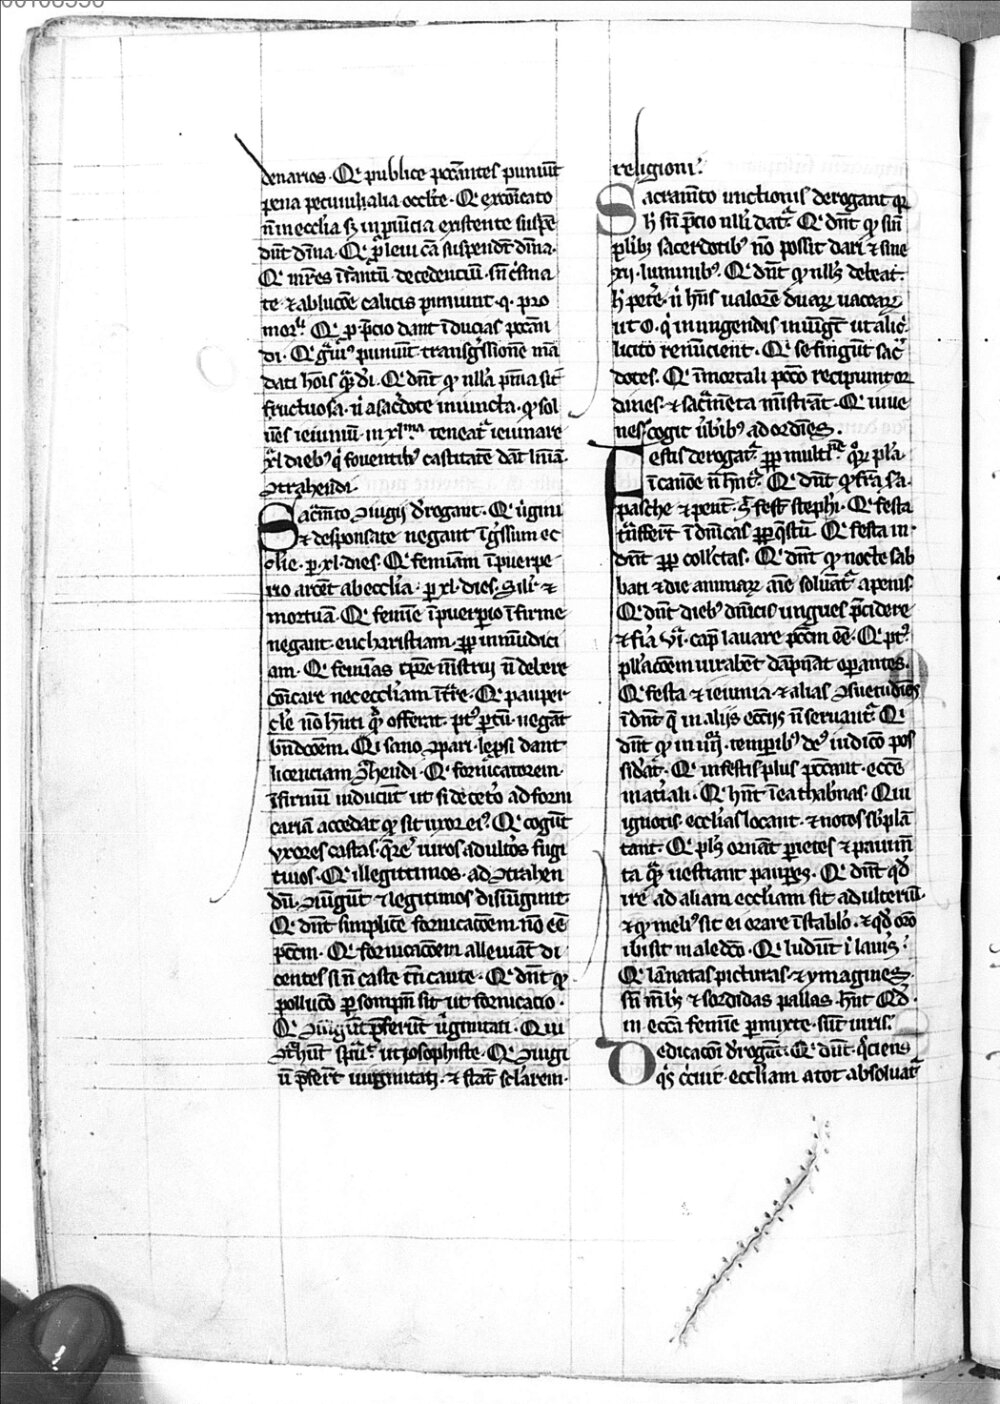 denarios. Qr publice peccantes puniunt
pena pecuniali a occulte. Qr excoicato
n in ecclia sz in puincia existente suspe
dunt diuina. Qr p leui ca suspendunt diuina.
Qr mres infantiu decedentiu sn crisma
te et ablucoe calicis puniunt. q. pro
mort. Qr p pcio dant iducias peccan
di. Qr grauius puniunt transgssione ma
dati hois quam di. Qr dnt qd nulla pnia sit
fructuosa n a sacdote iniuncta. qd sol
uens ieiuniu in xlma teneat ieiunare
xl dieb q fouentib castitate dant lniam
ctrahendi.
Sacramto coniugii drogant. Qr uirgini
et desponsate negant ingssum ec
clie p xl dies. Qr feminam i puerpe
rio arcent ab ecclia p xl dies. Silr et
mortuam. Qr femine i puerperio ifirme
negant eucharistiam ppt inmudici
am. Qr feminas tpre mstrui n debere
coicare nec eccliam itrare. Qr pauper
cle no hnti qd offerat pt ptu negant
bndcoem. Qr sano copari leprosi dant
licenciam contrahendi. Qr fornicatorem
ifirmu inducunt ut si deceto ad forni
cariam accedat qd sit uxor ei. Qr cogunt
uxores castas qrere uiros adultos fugi
tiuos. Qr illegittimos ad ctrahen
du iungunt et legitimos disiungunt.
Qr dnt simplice fornicacoem no ee
pctm. Qr fornicacoem alleuiant di
centes si n caste tn caute. Qr dnt qd
polluco p sompn sit ut fornicacio.
Qr coniugiu pferunt uirginitati. Qui
ut iosophiste. Qr coniugi
u pferunt uirginitati et statu sclarem
religioni.
Sacramto unctionis derogant qr
h sn pcio nulli dat. Qr dnt qd sin
plib sacerdotib no possit dari et sine
xii luminib. Qr dnt qd nulls debeat
h petere n hns ualore duar uaccar
ut o. q inungendis iniungunt ut alic
licito renuncient. Qr se fingunt sac
dotes. Qr i mortali pcco recipiunt or
dines et sacmenta ministrant. Qr iuue
nes cogit urbib ad ordies.
Festis derogat ppt multitudine qr pla
i canoe n hnt. Qr dnt qd fra sa
pasche et pent. fest stephi. Qr festa
transferunt i dnicas ppt qstu. Qr festa in
dnt ppt collectas. Qr dnt qd nocte sab
bati et die animar aie soluant a penis
Qr dnt dieb dnicis ungues pcidere
et fia vi cap lauare pctm ee. Qr pt
pllacoem uirabent dampnat operantes.
Qr festa et ieiunia et alias csuetudies
idnt q in aliis eccis n seruant. Qr
dnt qd in iiii temporib de iudico pos
sidat. Qr in festis plus peccant ecce
matiali. Qr hnt i ea thabnas. Qui
ignotis ecclias locant et notos supplan
tant. Qr pl ornant parietes et pauim
ta quam uestiant paupes. Qr dnt qd
ire ad aliam eccliam sit adulteriu
et qd meli sit ei orare i stablo. et qd oro
ibi sit maledco. Qr ludunt i
Qr picturas et ymagines
et sordidas pallas hnt. Qd
in ecca femine pmixte sunt uiris.
Dedicacoi drogant. Qr dunt qciens
qs circuit eccliam a tot absoluat